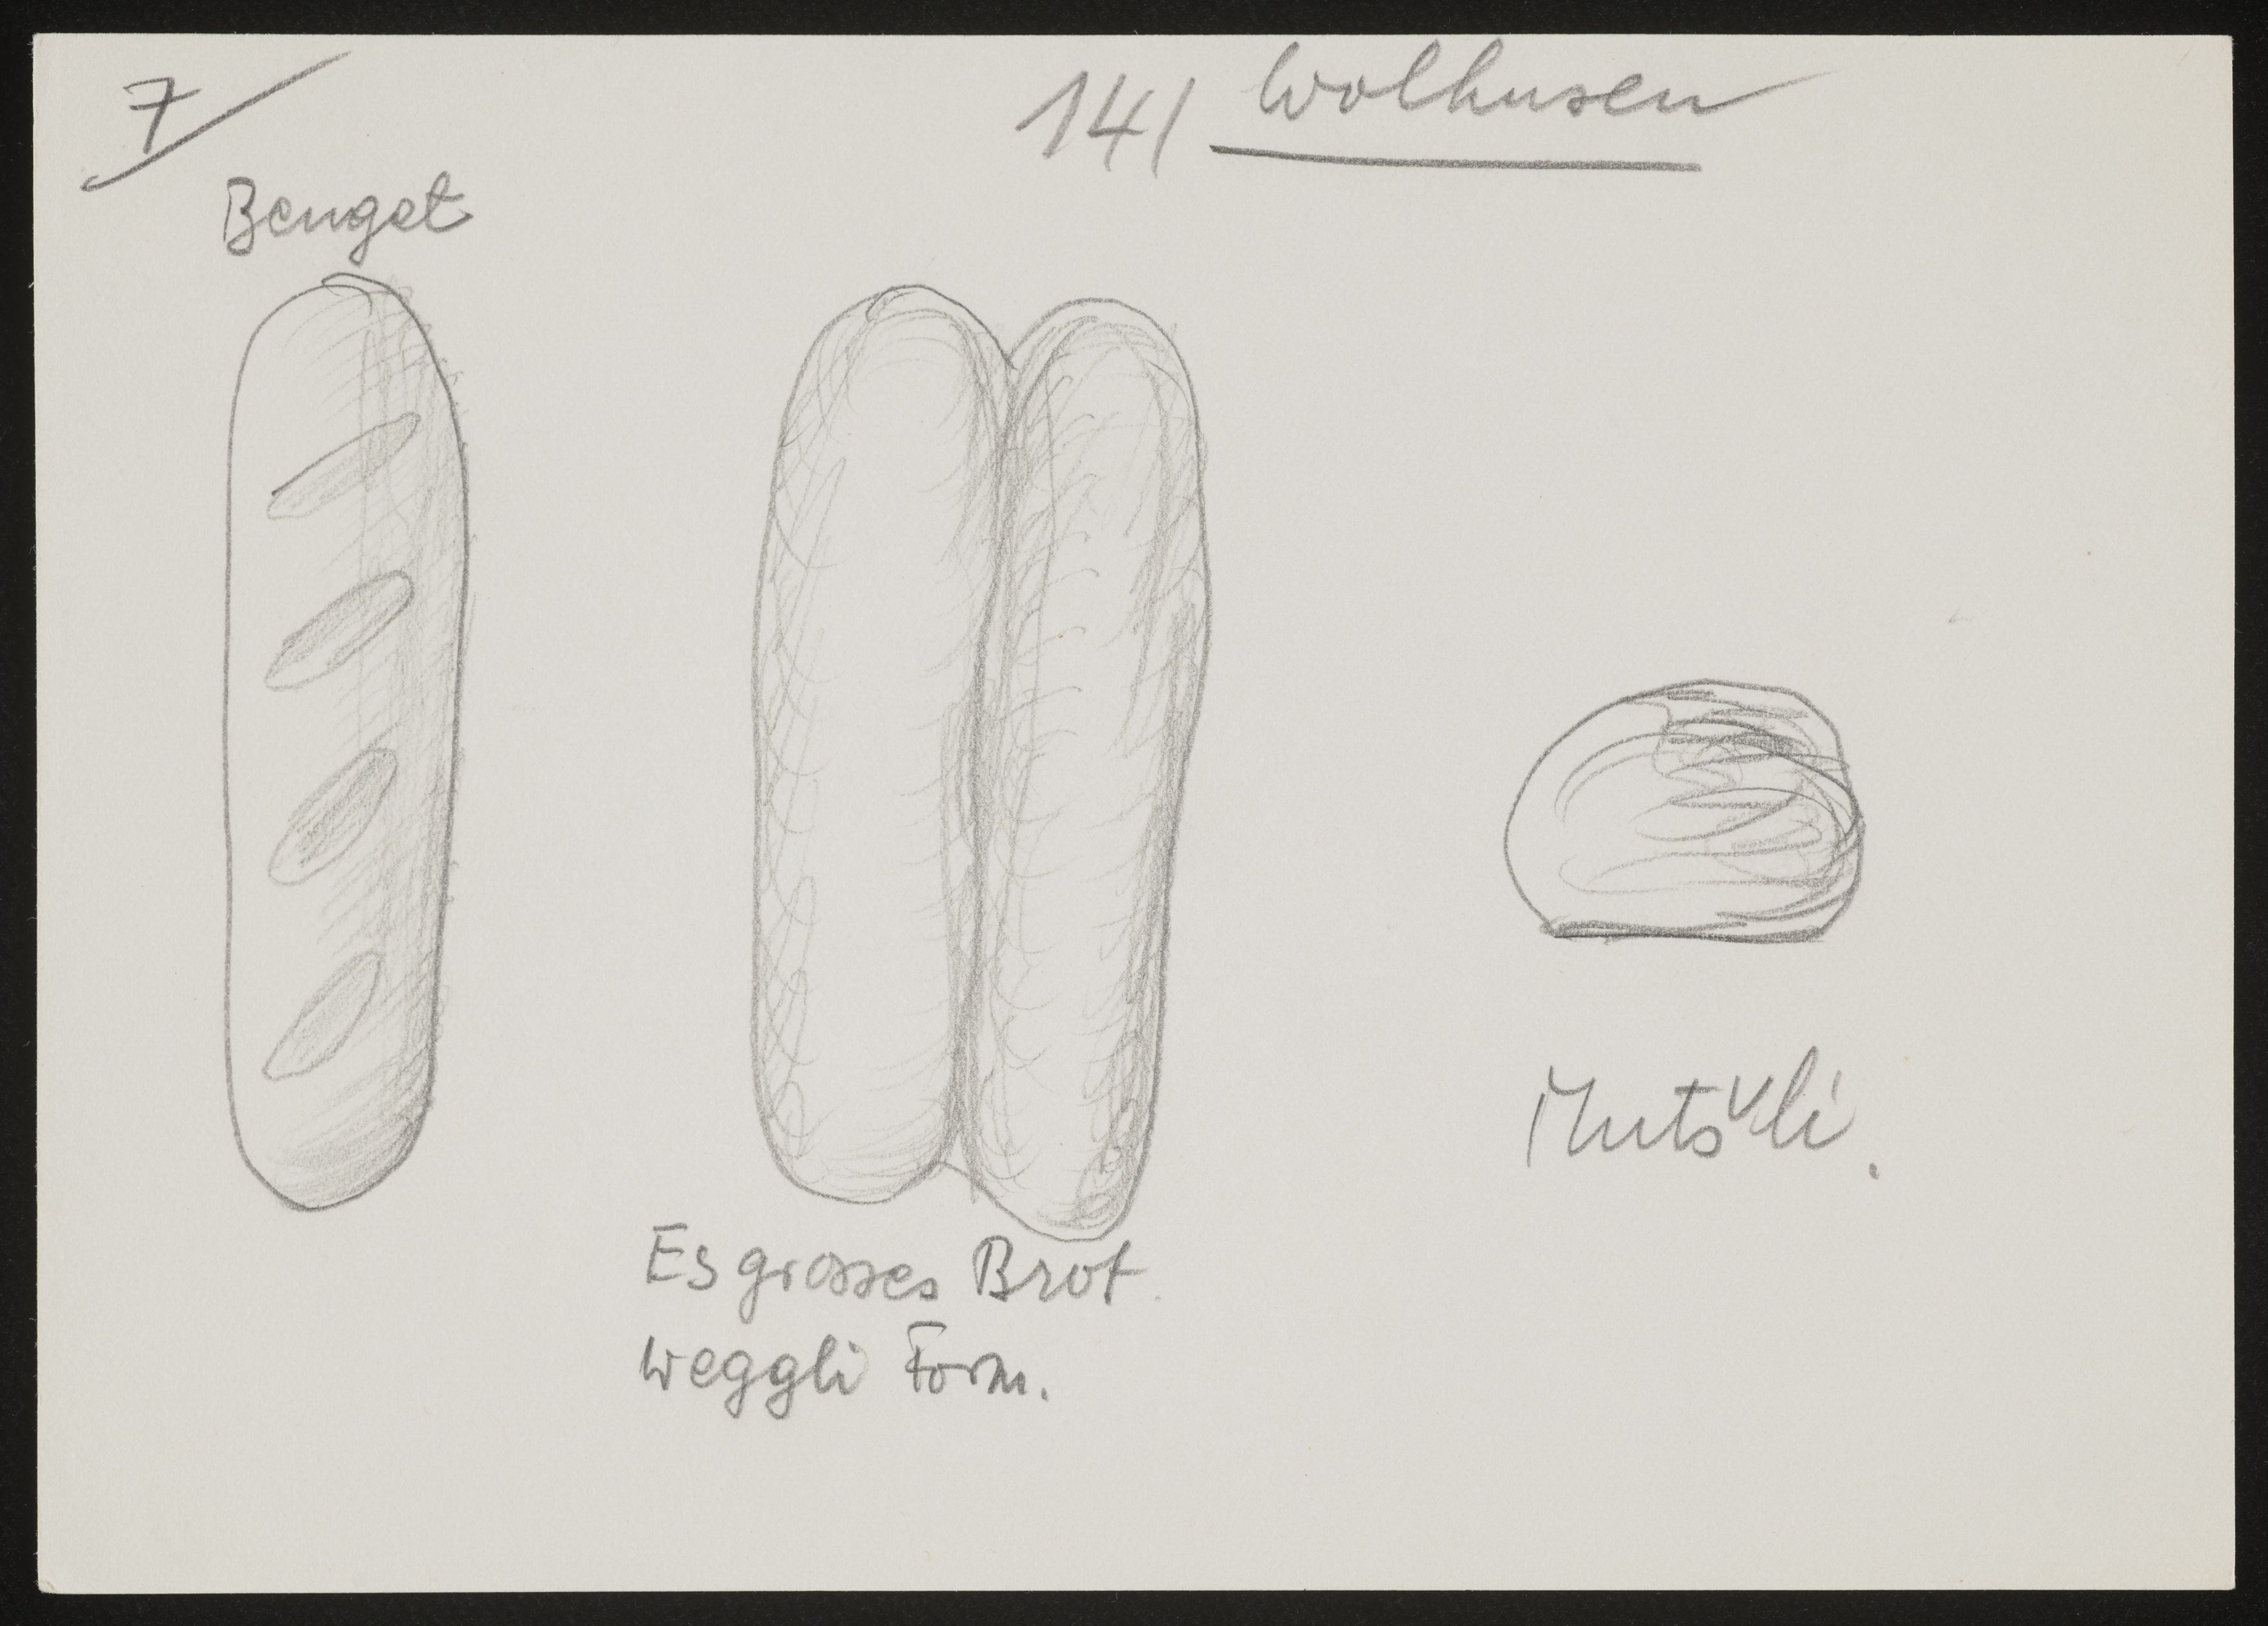 7
141 Wolhusen
Benget
Es grosses Brot.
Weggli Form.